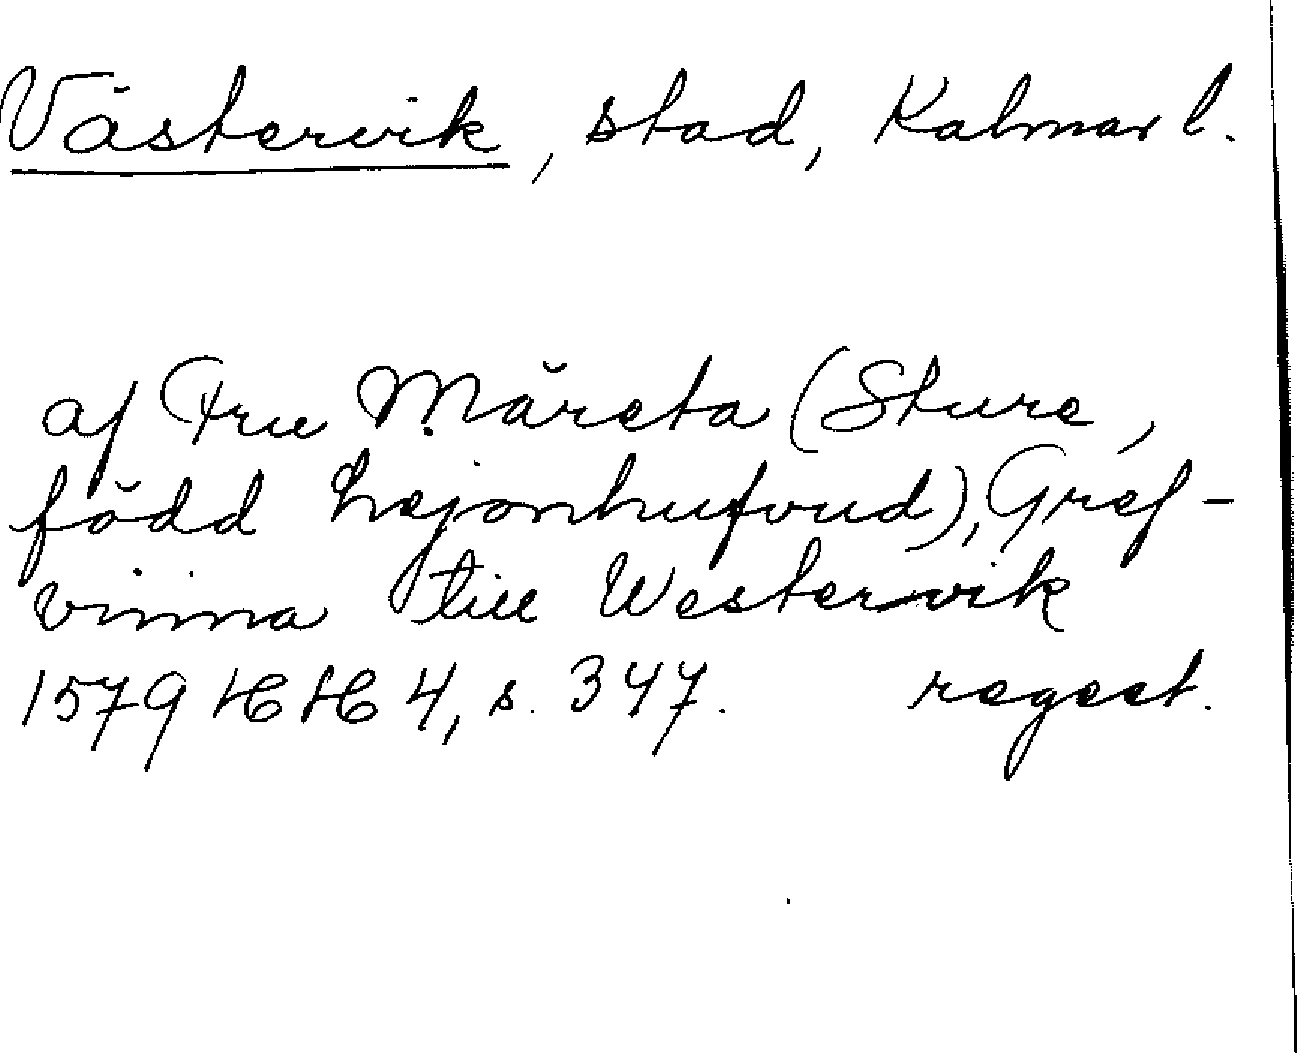 Västervik, stad, Kalmar l.
af Fru Märeta (Sture,
född Lejonhufvud), Gref-
vinna till Westervik
1579 HH 4, s. 347. regest.